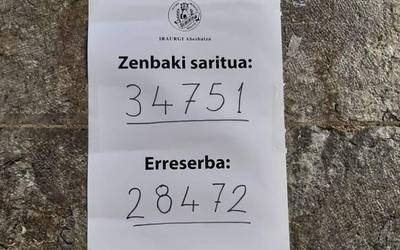 IRAURGI Abesbatza
Zenbaki saritua:
34751
Erreserba:
28472